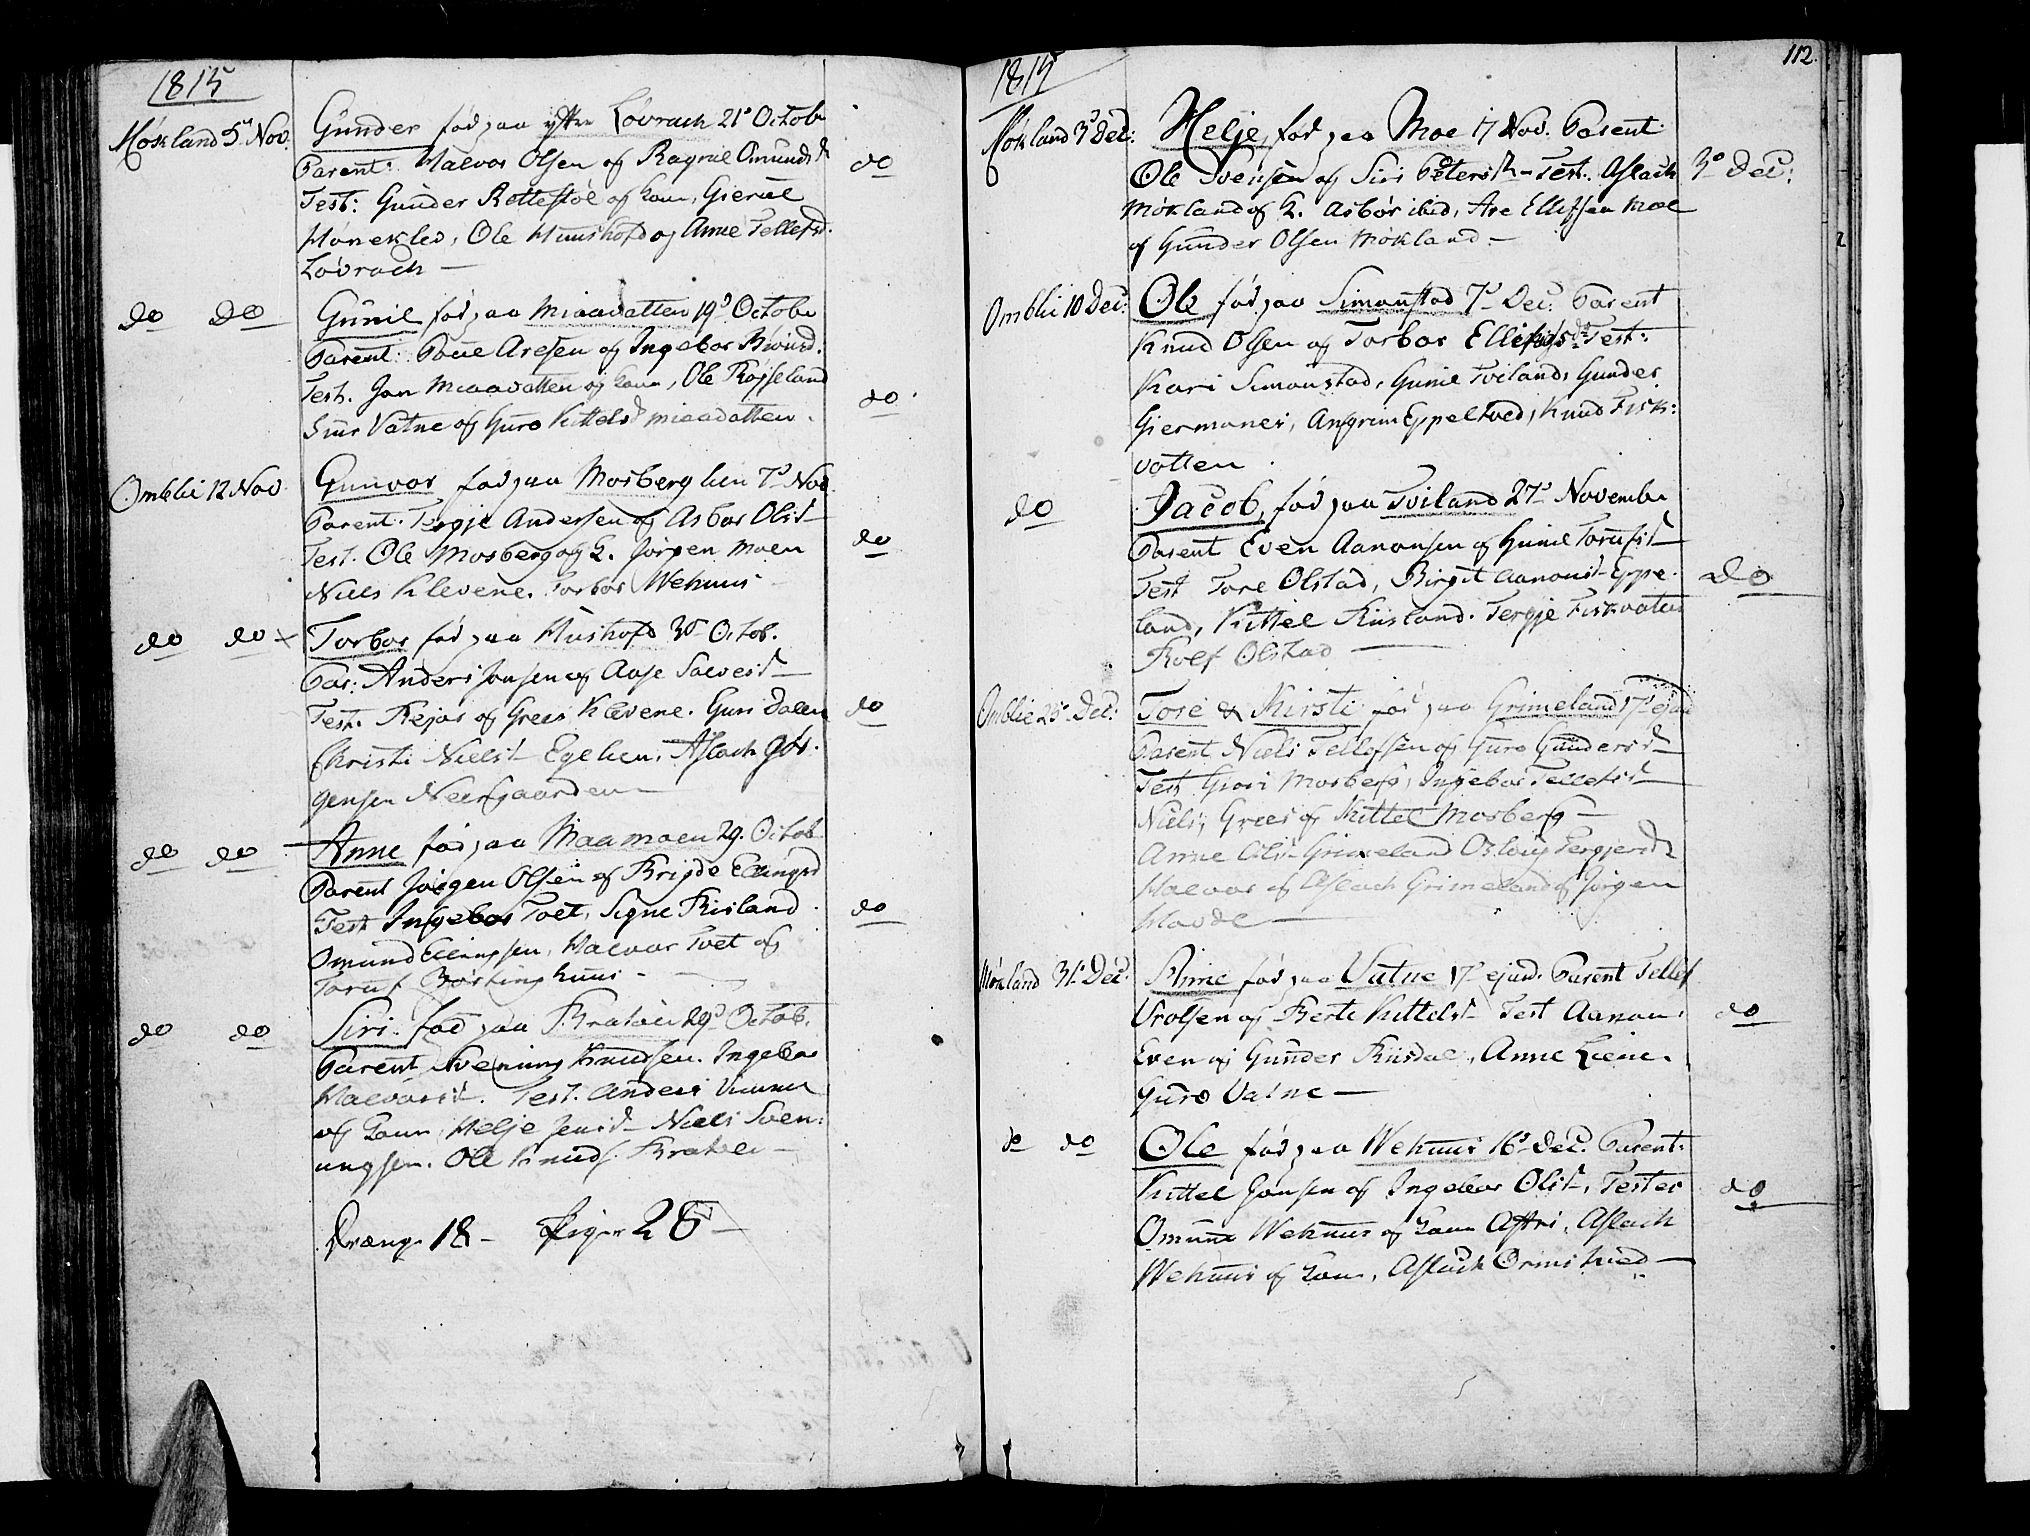 1815
Møkland 5t Nov. Gunder fød paa yttre Løvrack 21d Octob
Parent: Halvor Olsen og Ragnil Omundsd do
Test: Gunder Rettestøl og Kone, Gieruel
Hønekled, Ole Huushofd og Anne Tellefsd.
Løvrack —
do do Gunil fød paa Miaavatten 19d Octobr
Parent: Poul Aresen og Ingebor
Test. Jon Miaavatten og Kone, Ole Røjseland
Siur Vatne og Guro Kittelsd Miaavatten. do
Omblie 12 Nov. Gunvor fød paa Mosberglien 7d Nov
Parent. Tergje Andersen og Asbor Olsd
Test. Ole Mosberg og K. Jørgen Moen do
Niels Klevene. Torbor Wehuus
do do Torbor fød paa Hushofd 30 Octob.
Par: Anders Jonsen og Aase Salvesd
Test. Rejar og Grees Klevene. Guri Dalen do
Christi Nielsd Eglien. Aslach Jør-
gensen Neergaarden
do do Anne fød paa Maamoen 29. Octob
Parent Jørgen Olsen og Brigde Ellingsd
Test Ingebor Tvet, Signe Risland do
Omund Ellingsen, Halvor Tvet og
Toruf
do do Siri fød paa Kratelie 29d Octob.
Parent Svenung Knudsen. Ingebor
Halvorsd. Test. Anders
og Kone, Helje Jensd Niels Sven:
ungsen. Ole Knuds. Kratelie
Drænge 18 — Piger 28 —
1815 112.
Møkland 3d Dec: Helje, fød paa Moe 17 Nov. Parent
Ole Svensen og Siri Petersd — Test. Aslach 3d Dec:
Møkland og K. Asbor ibid, Are Ellefsen Moe
og Gunder Olsen Møkland —
Omblie 10 Dec: Ole fød paa Simonstad 7d Dec. Parent
Knud Olsen og Torbor Ellefsd Test:
Kari Simonstad, Gunil Tveland, Gunder
Giermanes, Ansgrim Eppeltved, Knud Fisk:
vatten.
do Jacob, fød paa Tviland 27d Novembr
Parent Even Aanonsen og Gunil Torufsd
Test Tore Olstad, Birgit Aanonsd Eppe- do
land, Kittel Risland. Tergje Fiskvaten
Rolf Olstad —
Omblie 25d Dec: Tore & Kirsti fød paa Grimeland 17d ejusd
Parent Niels Tellefsen og Guro Gundersd
Test Guri Mosberg, Ingebor Tellefsd
Niels, Grees og Kittel Mosberg —
Anne Olsd Grimeland Oslaug Tergjersd
Halvor og Aslach Grimeland og Jørgen
Havde —
Møkland 31d Dec: Anne fød paa Vatne 17d ejusd. Parent Tellef
Vrolsen og Berte Kittelsd Test Aanon, do
Even og Gunder Riisdal, Anne Liene.
Guro Vatne —
do do Ole fød paa Wehuus 16d Dec. Parent:
Kittel Jonsen og Ingebor Olsd. Testes do
Omund Wehuus og Kone Astri, Aslach
Wehuus og Kone, Aslach Ormstved —